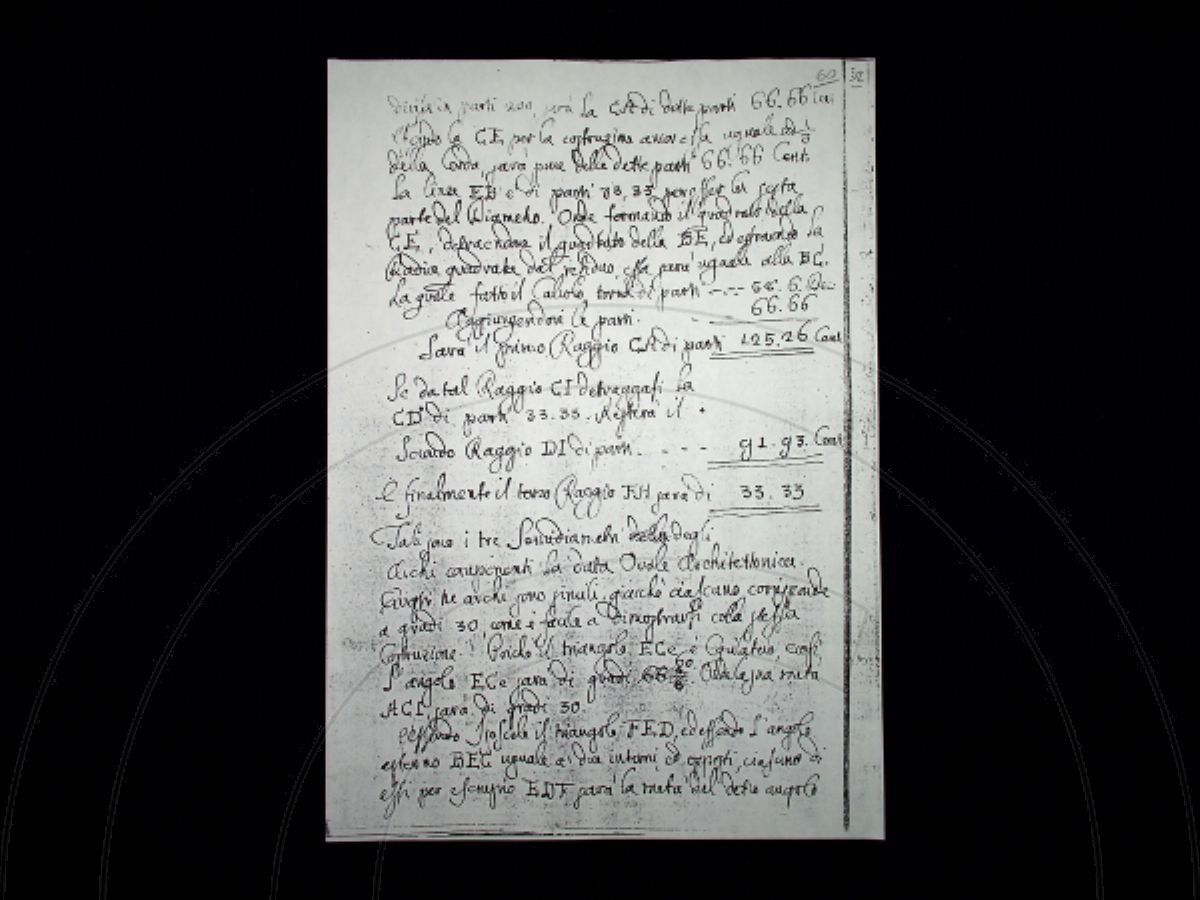 60 52
divisa in parti 200, sarà la CA di dette parti 66.66 Cen.
Essendo la CE per la costruzione ancor essa uguale ad 1/3
della Corda, sarà pure delle dette parti 66.66 Cent.
La linea EB è di parti 33.33 per esser la sesta
parte del Diametro. Onde formando il quadrato della
CE, detraendone il quadrato della BE, ed estraendo la
Radice quadrata dal residuo, essa sarà uguale alla BC.
La quale fatto il Calcolo, torna di parti ---- 58.6. De:
Aggiungendovi le parti. - 66.66
Sarà il primo Raggio CA di parti 125.26 Cent
Se da tal Raggio CI detraggasi la
CD di parti 33.33. Resterà il
Secondo Raggio DI di parti. - - - 91.93. Cent
E finalmente il terzo Raggio FH sarà di 33.33
Tali sono i tre Semidiametri degli
Archi componenti la data Ovale Architettonica.
Questi tre archi sono simili, giacchè ciascuno corrisponde
a gradi 30, come è facile a dimostrarsi colla stessa
Costruzione. Poichè il triangolo ECe è Equilatero, così
l'angolo ECe sarà di gradi 60. Onde la sua metà
ACI sarà di gradi 30.
Essendo Isoscele il triangolo FED, ed essendo l'angolo
esterno BEC uguale a' due interni, ed opposti, ciascuno di
essi per esempio EDF sarà la metà del detto angolo